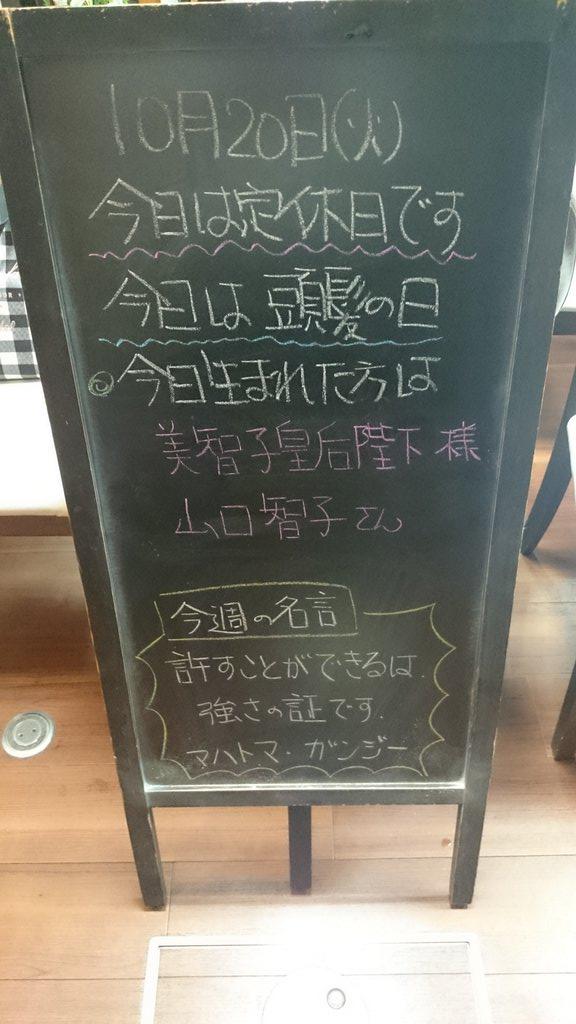 10月20日(火)
今日は定休日です
今日は 頭髪の日
◎今日生まれた方は
美智子皇后陛下 様
山口智子さん
今週の名言
許すことができるは.
強さの証です.
マハトマ・ガンジー